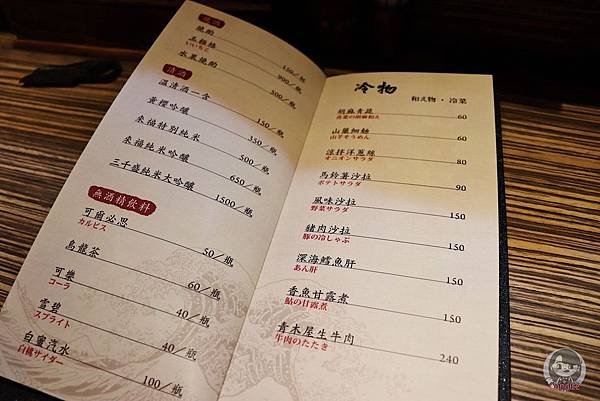 燒酌
五頓株
いいちこ
150／
900／瓶
水果燒酌
500／瓶
清酒
溫清酒一合
150／瓶
黃櫻吟釀
350／瓶
來福特別純米
500／瓶
來福純米吟釀
650／瓶
三千盛純米大吟釀
1500／瓶
無酒精飲料
可爾必思
カルピス
50／瓶
烏龍茶
60／瓶
可樂
コーラ
40／瓶
雪碧
スプライト
40／瓶
白蜜汽水
白桃サイダー
100／瓶
冷物
和え物・冷菜
胡麻青蔬
青菜の胡麻和え
60
山藥細麵
山芋そうめん
60
涼拌洋蔥絲
オニオンサラダ
80
馬鈴薯沙拉
ポテトサラダ
90
風味沙拉
野菜サラダ
150
豬肉沙拉
豚の冷しゃぶ
150
深海鱈魚肝
あん肝
150
香魚甘露煮
鮎の甘露煮
150
青木屋生牛肉
牛肉のたたき
240